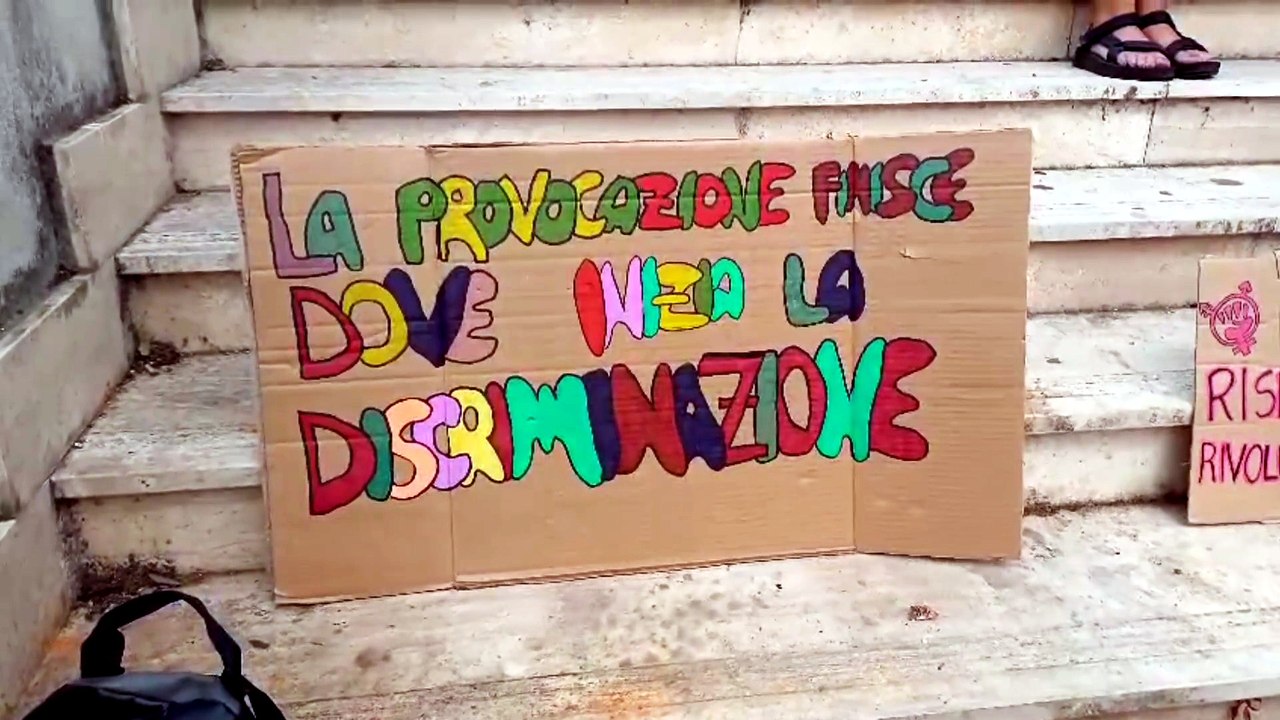 LA PROVOCAZIONE FINISCE
DOVE INIZIA LA
DISCRIMINAZIONE